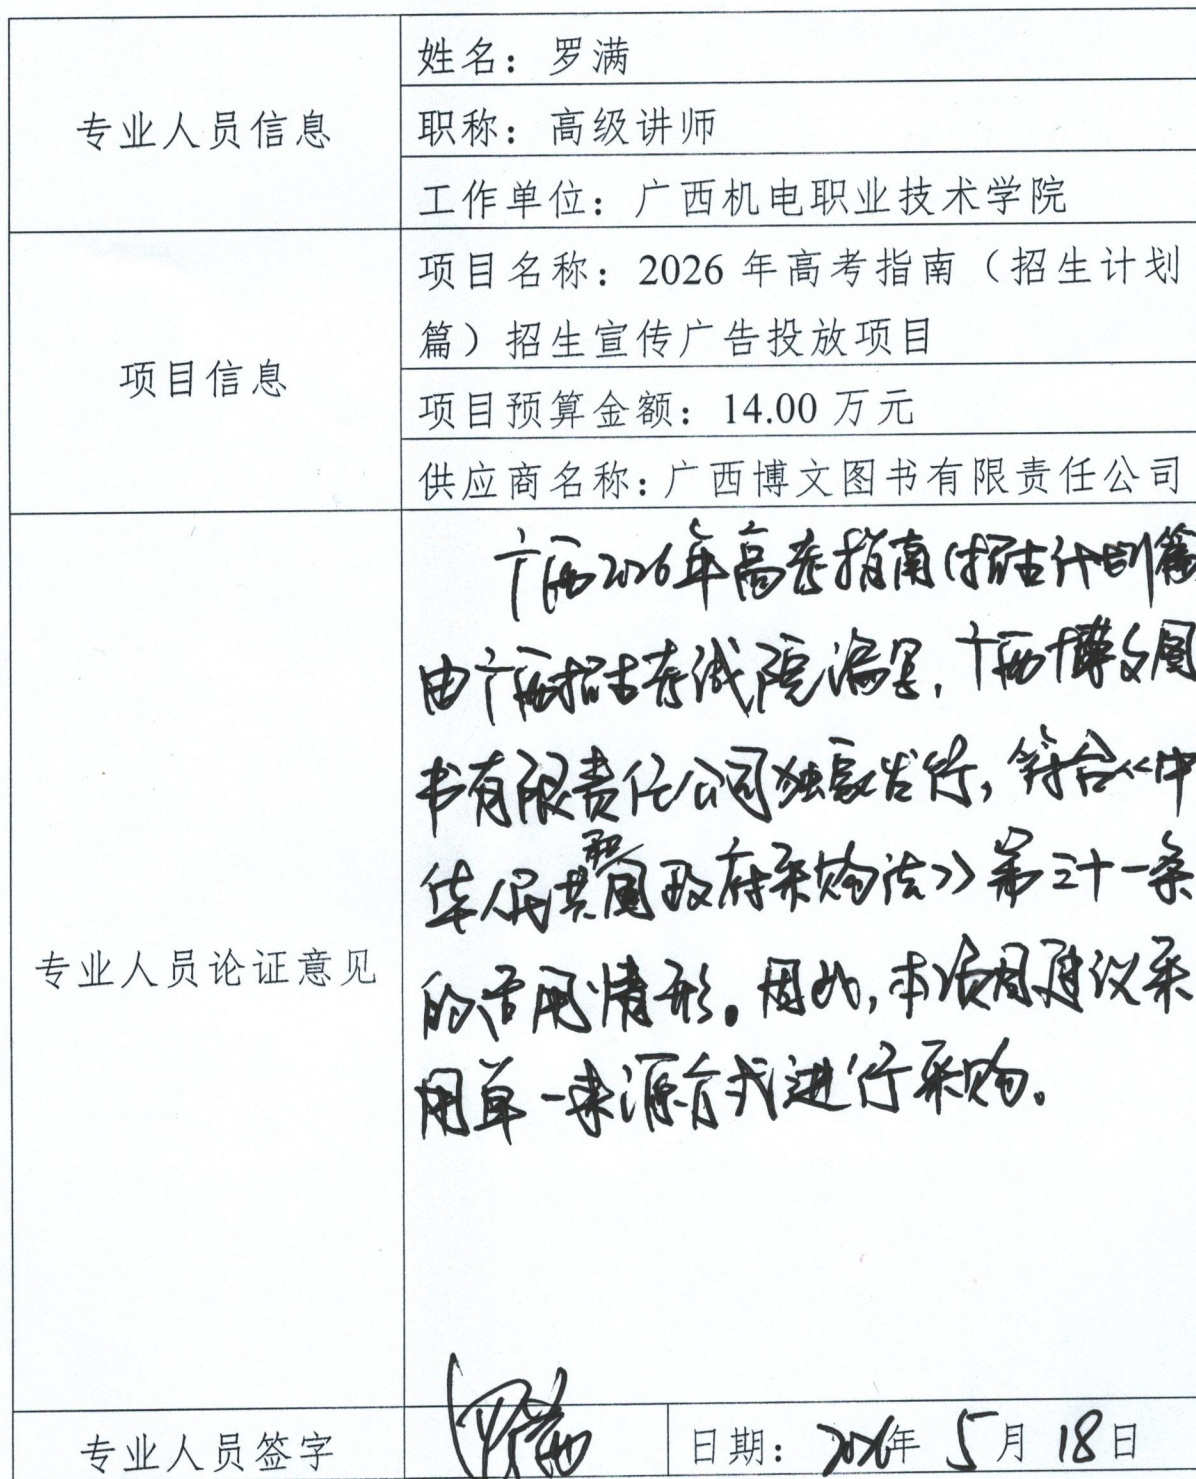 专业人员信息
姓名：罗满
职称：高级讲师
工作单位：广西机电职业技术学院
项目信息
项目名称：2026 年高考指南（招生计划
篇）招生宣传广告投放项目
项目预算金额：14.00 万元
供应商名称：广西博文图书有限责任公司
专业人员论证意见
广西2026年高考指南（招生计划篇
由广西招生考试院编写，广西博文图
书有限责任公司独家发行，符合《中
华人民共和国政府采购法》第三十一条
的适用情形。因此，本项目建议采
用单一来源方式进行采购。
专业人员签字
罗满
日期：2026年 5月 18日